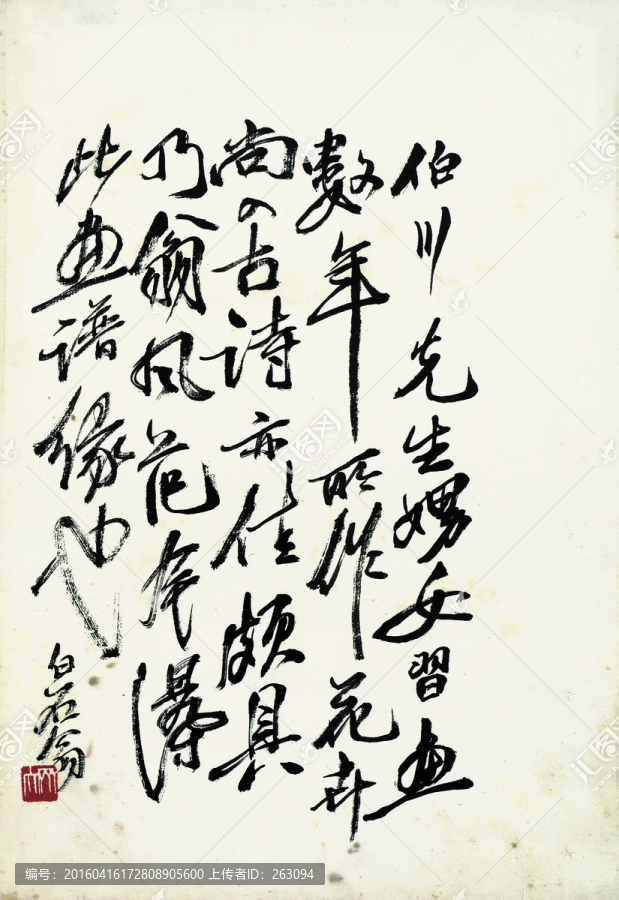 伯川先生嬺女習画
數年所作花卉
尚可古詩亦佳頗具
乃翁风范今得
此画譜缘也
白石翁
编号: 20160416172808905600 上传者ID: 263094